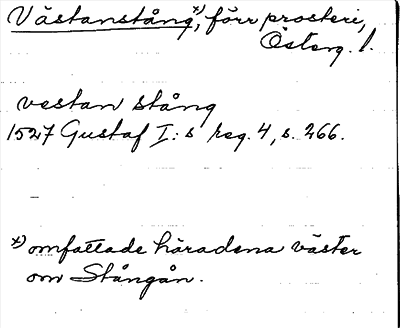 Västanstång*), förr prosteri,
Österg. l.
vestan stång
1527 Gustaf I:s reg. 4, s. 266.
*) omfattade häradena väster
om Stångån.